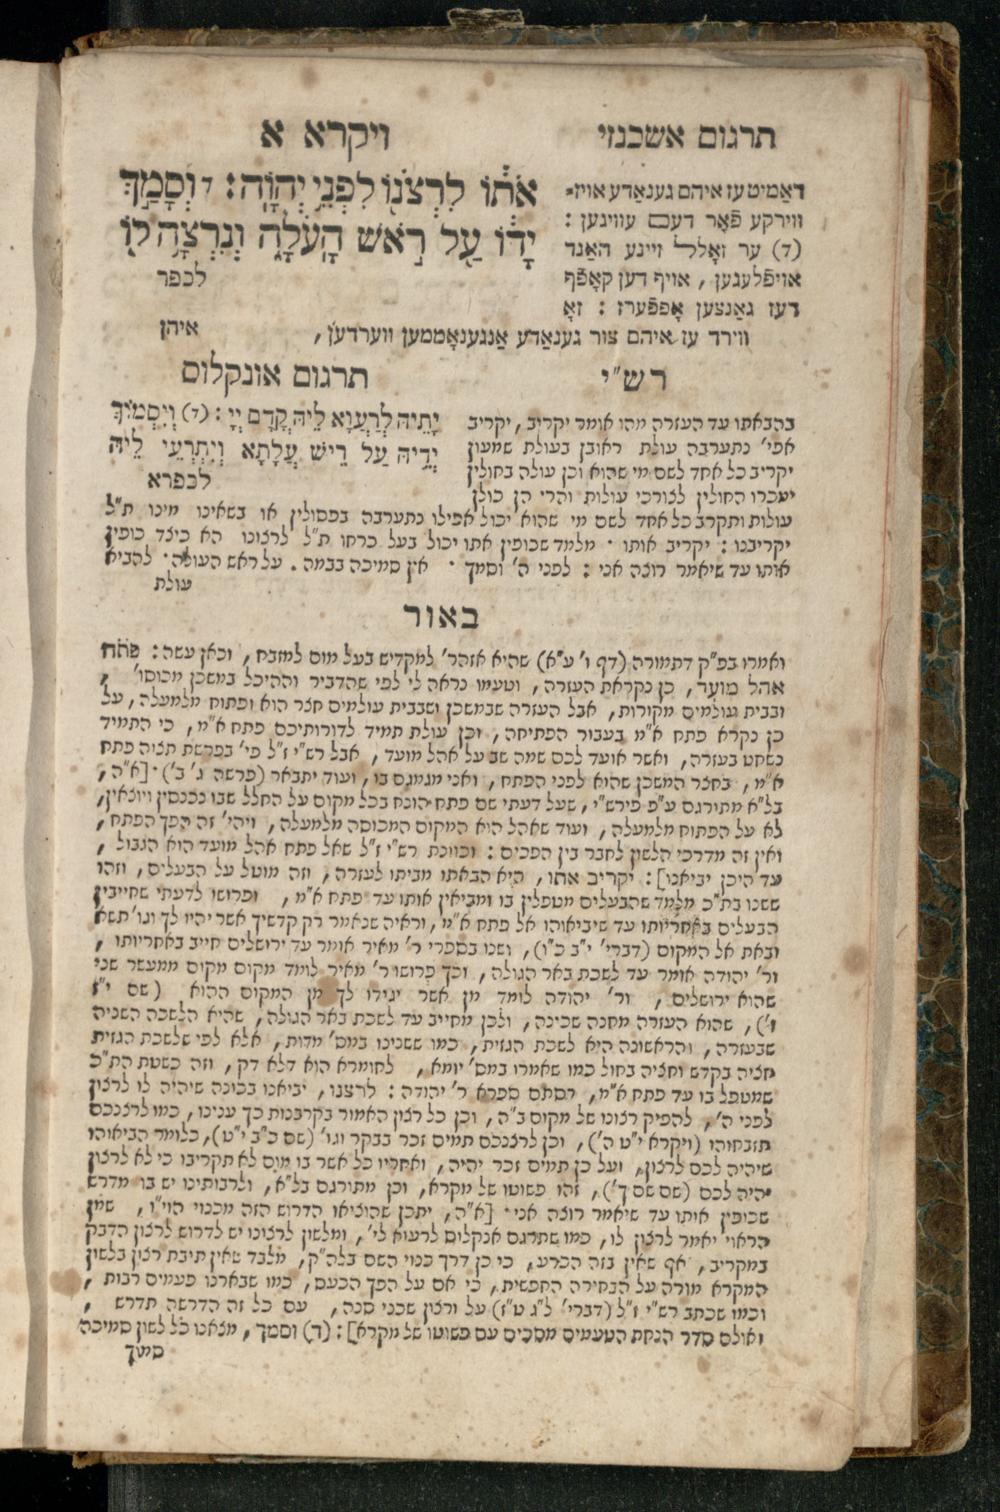 תרגום אשכנזי
ויקרא א
דאַמיט עז איהם גענאַדע אויז־
ווירקע פֿאָר דעם עוויגען :
(ד) ער זאָללׄ זיינע האַנד
אויפֿלעגען , אויף דען קאָפּף
דעז גאַנצען אָפּפֿערז : זאָ
ווירד עז איהם צור גענאַדע אָנגענאָממען ווערדען ,
איהן
אֹת֔וֹ לִרְצֹנ֖וֹ לִפְנֵ֥י יְהוָֹֽה : ד וְסָמַ֣ךְ
יָד֔וֹ עַ֖ל רֹ֣אשׁ הָֽעֹלָ֑ה וְנִרְצָ֥ה ל֖וֹ
לכפר
רש״י
בהבאתו עד העזרה מהו אומר יקריב , יקריב
אפי׳ נתערבה עולת ראובן בעולת שמעון
יקריב כל אחד לשם מי שהוא וכן עולה בחולין
ימכרו החולין לצורכי עולות והרי הן כולן
עולות ותקרב כל אחד לשם מי שהוא יכול אפילו נתערבה בפסולין או בשאינו מינו ת״ל
יקריבנו : יקריב אותו · מלמד שכופין אתו יכול בעל כרחו ת״ל לרצונו הא כיצד כופין
אותו עד שיאמר רוצה אני : לפני ה׳ וסמך · אין סמיכה בבמה . על ראש העולה · להביא
עולת
תרגום אונקלוס
יָתֵיהּ לְרַעֲוָא לֵיהּ קֳדָם יְיָ : (ד) וְיִסְמוֹךְ
יְדֵיהּ עַל רֵישׁ עֲלָתָא וְיִתְרְעֵי לֵיהּ
לכפרא
באור
ואמרו בפ״ק דתמורה (דף ו׳ ע״א) שהיא אזהר׳ למקדיש בעל מום למזבח , וכאן עשה : פתח
אהל מועד , כן נקראת העזרה , וטעמו נראה לי לפי שהדביר וההיכל במשכן מכוסו׳ ,
ובבית עולמים מקורות , אבל העזרה שבמשכן ושבבית עולמים חצר הוא ופתוח מלמעלה , על
כן נקרא פתח א״מ בעבור הפתיחה , וכן עולת תמיד לדורותיכם פתח א״מ , כי התמיד
נשחט בעזרה , ואשר אועד לכם שמה שב על אהל מועד , אבל רש״י ז״ל פי׳ בפרשת תצוה פתח
א״מ , בחצר המשכן שהוא לפני הפתח , ואני מגמגם בו , ועוד יתבאר (פרשה ג׳ ב׳) · [א״ה ,
בל״א מתורגם ע״פ פירש״י , שעל דעתי שם פתח הונח בכל מקום על החלל שבו נכנסין ויוצאין ,
לא על הפתוח מלמעלה , ועוד שאהל הוא המקום המכוסה מלמעלה , ויהי׳ זה הפך הפתח ,
ואין זה מדרכי הלשון לחבר בין הפכים : וכוונת רש״י ז״ל שאל פתח אהל מועד הוא הגבול ,
עד היכן יביאנו] : יקריב אתו , היא הבאתו מביתו לעזרה , וזה מוטל על הבעלים , וזהו
ששנו בת״כ מלמד שהבעלים מטפלין בו ומביאין אותו עד פתח א״מ , ופרושו לדעתי שחייבין
הבעלים באחריותו עד שיביאוהו אל פתח א״מ , וראיה שנאמר רק קדשיך אשר יהיו לך וגו׳ תשא
ובאת אל המקום (דברי׳ י״ב כ״ו) , ושנו בספרי ר׳ מאיר אומר עד ירושלים חייב באחריותו ,
ור׳ יהודה אומר עד לשכת באר הגולה , וכך פרושו ר׳ מאיר לומד מקום מקום ממעשר שני
שהוא ירושלים , ור׳ יהודה לומד מן אשר יגידו לך מן המקום ההוא (שם י״ז
י׳) , שהוא העזרה מחנה שכינה , ולכן מחייב עד לשכת באר הגולה , שהיא הלשכה השניה
שבעזרה , והראשונה היא לשכת הגזית , כמו ששנינו במס׳ מדות , אלא לפי שלשכת הגזית
חציה בקדש וחציה בחול כמו שאמרו במס׳ יומא , לחומרא הוא דלא דק , וזה כשטת הת״כ
שמטפל בו עד פתח א״מ , דסתם ספרא ר׳ יהודה : לרצנו , יביאנו בכונה שיהיה לו לרצון
לפני ה׳ , להפיק רצונו של מקום ב״ה , וכן כל רצון האמור בקרבנות כך ענינו , כמו לרצנכם
תזבחוהו (ויקרא י״ט ה׳) , וכן לרצנכם תמים זכר בבקר וגו׳ (שם כ״ב י״ט) , כלומר הביאוהו
שיהיה לכם לרצון , ועל כן תמים זכר יהיה , ואחריו כל אשר בו מום לא תקריבו כי לא לרצון
יהיה לכם (שם שם ך׳) , זהו פשוטו של מקרא , וכן מתורגם בל״א , ולרבותינו יש בו מדרש
שכופין אותו עד שיאמר רוצה אני · [א״ה , יתכן שהוציאו הדרוש הזה מכנוי הוי״ו , שמן
הראוי יאמר לרצון לו , כמו שתרגם אנקלום לרעוא לי׳ , ומלשון לרצונו יש לדרוש לרצון הדבק
במקריב , אף שאין בזה הכרע , כי כן דרך כנוי השם בלה״ק , מלבד שאין תיבת רצון בלשון
המקרא מורה על הבחירה החפשית , כי אם על הפך הכעס , כמו שבארנו פעמים רבות ,
וכמו שכתב רש״י ז״ל (דברי׳ ל״ג ט״ז) על ורצון שכני סנה , עם כל זה הדרשה תדרש ,
ואולם סדר הנחת הטעמים מסכים עם פשוטו של מקרא] : (ד) וסמך , מצאנו כל לשון סמיכה
סמך